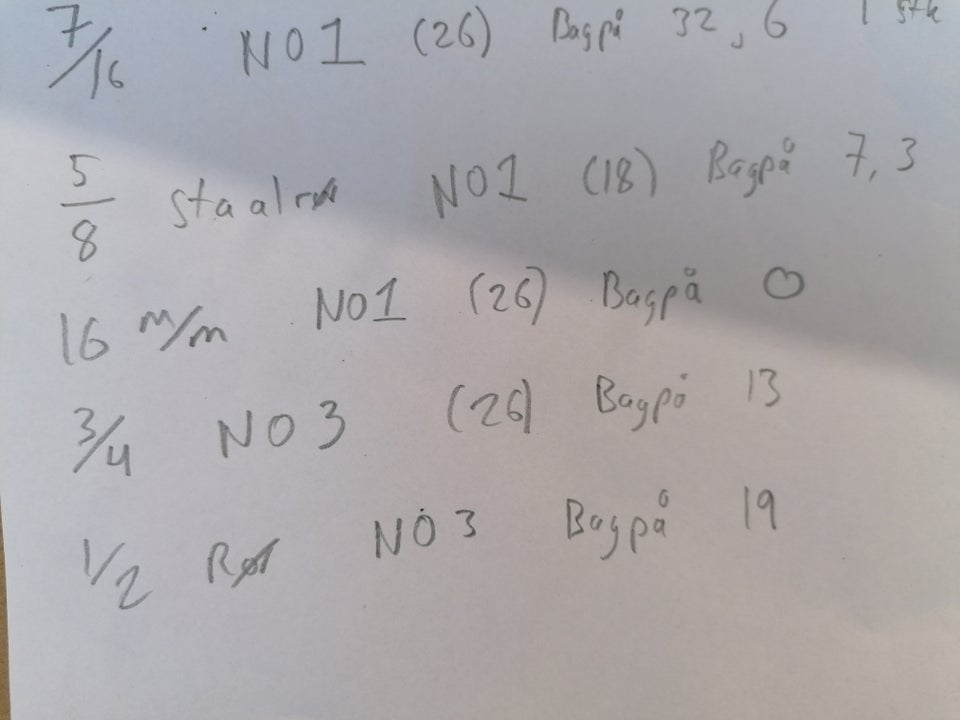 7/16 NO1 (26) Bagpå 32,6 1 stk
5/8 staalrør NO1 (18) Bagpå 7,3
16 m/m NO1 (26) Bagpå 0
3/4 NO 3 (26) Bagpå 13
1/2 Rør NO 3 Bagpå 19